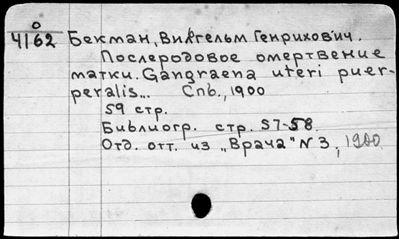 о
4162 Бекман, Вильгельм Генрихович.
Послеродовое омертвение
матки. Gangraena uteri puer-
peralis... Спб., 1900
59 стр.
Библиогр. стр. 57-58.
Отд. отт. из „Врача" N 3, 1900